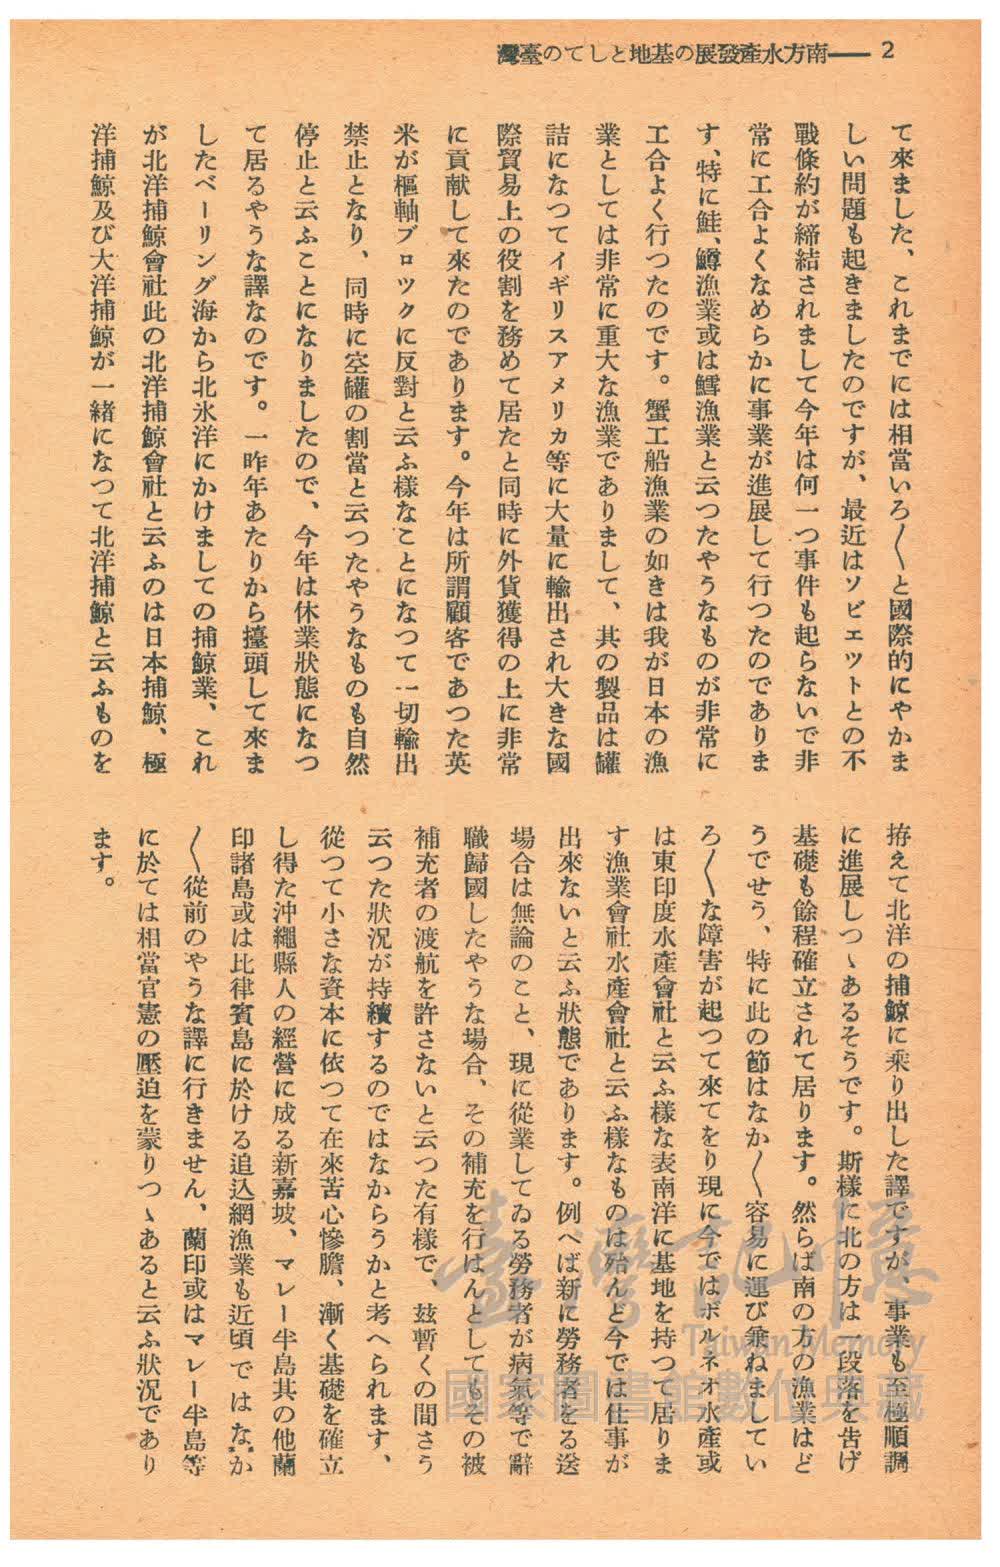 2 ――南方水產發展の基地としての臺灣
て來ました、これまでには相當いろ〱と國際的にやかま
しい問題も起きましたのですが、最近はソビエツトとの不
戰條約が締結されまして今年は何一つ事件も起らないで非
常に工合よくなめらかに事業が進展して行つたのでありま
す、特に鮭、鱒漁業或は鱈漁業と云つたやうなものが非常に
工合よく行つたのです。蟹工船漁業の如きは我が日本の漁
業としては非常に重大な漁業でありまして、其の製品は罐
詰になつてイギリスアメリカ等に大量に輸出され大きな國
際貿易上の役割を務めて居たと同時に外貨獲得の上に非常
に貢献して來たのであります。今年は所謂顧客であつた英
米が樞軸ブロツクに反對と云ふ樣なことになつて一切輸出
禁止となり、同時に空罐の割當と云つたやうなものも自然
停止と云ふことになりましたので、今年は休業狀態になつ
て居るやうな譯なのです。一昨年あたりから擡頭して來ま
したベーリング海から北氷洋にかけましての捕鯨業、これ
が北洋捕鯨會社此の北洋捕鯨會社と云ふのは日本捕鯨、極
洋捕鯨及び大洋捕鯨が一緒になつて北洋捕鯨と云ふものを
拵えて北洋の捕鯨に乘り出した譯ですが、事業も至極順調
に進展しつゝあるそうです。斯樣に北の方は一段落を告げ
基礎も餘程確立されて居ります。然らば南の方の漁業はど
うでせう、特に此の節はなか〱容易に運び兼ねましてい
ろ〱な障害が起つて來てをり現に今ではボルネオ水產或
は東印度水產會社と云ふ樣な表南洋に基地を持つて居りま
す漁業會社水產會社と云ふ樣なものは殆んど今では仕事が
出來ないと云ふ狀態であります。例へば新に勞務者をる送
場合は無論のこと、現に從業してゐる勞務者が病氣等で辭
職歸國したやうな場合、その補充を行はんとしてもその被
補充者の渡航を許さないと云つた有樣で、玆暫くの間さう
云つた狀況が持續するのではなからうかと考へられます、
從つて小さな資本に依つて在來苦心慘膽、漸く基礎を確立
し得た沖繩縣人の經營に成る新嘉坡、マレー半島其の他蘭
印諸島或は比律賓島に於ける追込網漁業も近頃ではなか
〱從前のやうな譯に行きません、蘭印或はマレー半島等
に於ては相當官憲の壓迫を蒙りつゝあると云ふ狀況であり
ます。
臺灣記憶
Taiwan Memory
國家圖書館數位典藏